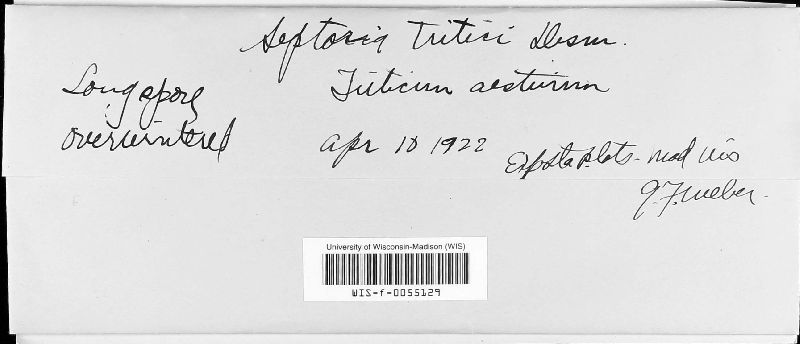 Septoria Tritici Desm.
Long spore
overwintered
Triticum aestivum
Apr 10 1922
Exp Sta plots - Mad Wis
G. F. Weber.
University of Wisconsin-Madison (WIS)
WIS-f-0055129